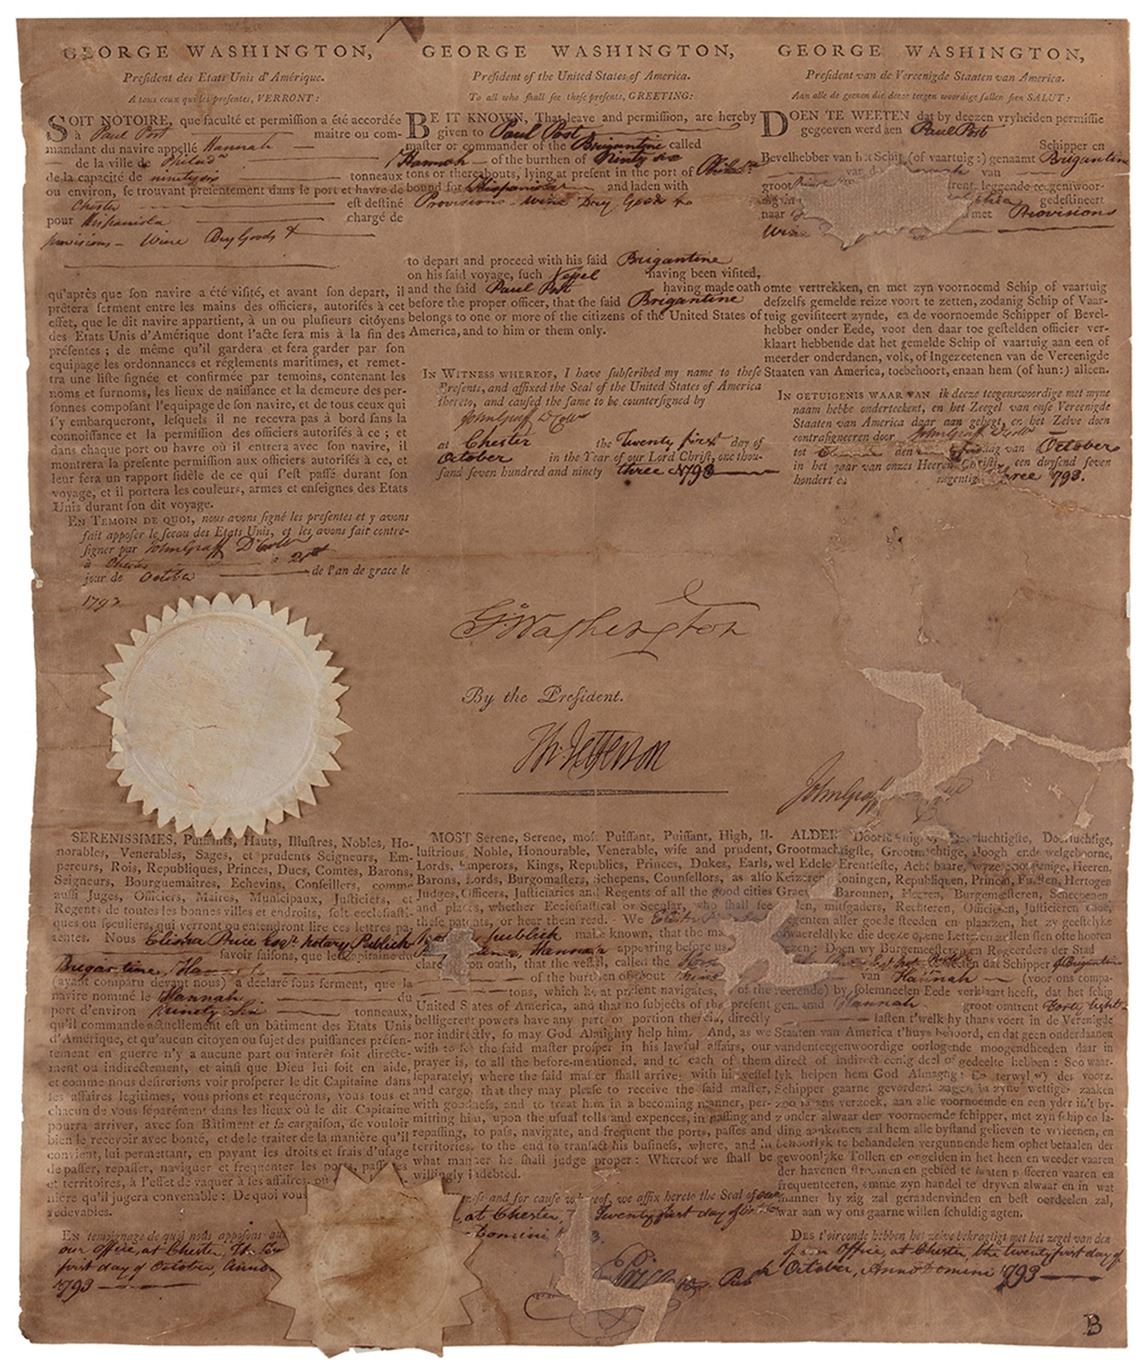 GEORGE WASHINGTON,
President des Etats Unis d'Amérique.
A tous ceux qui les presentes, VERRONT:
SOIT NOTOIRE, que faculté et permission a été accordée
à Paul Post maitre ou com-
mandant du navire appellé Hannah
de la ville de Philad^a
de la capacité de ninety six tonneaux
ou environ, se trouvant présentement dans le port et havre de
Chester est destiné
pour Hispaniola chargé de
provisions - Wine Dry Goods &
qu'après que son navire a été visité, et avant son depart, il
prétera serment entre les mains des officiers, autorisés à cet
effet, que le dit navire appartient, à un ou plusieurs citóyens
des Etats Unis d'Amérique dont l'acte sera mis à la fin des
présentes; de même qu'il gardera et fera garder par son
equipage les ordonnances et réglements maritimes, et remet-
tra une liste signée et confirmée par temoins, contenant les
noms et surnoms, les lieux de naissance et la demeure des per-
sonnes composant l'equipage de son navire, et de tous ceux qui
s'y embarqueront, lesquels il ne recevra pas à bord sans la
connoissance et la permission des officiers autorisés à ce; et
dans chaque port ou havre où il entrera avec son navire, il
montrera la presente permission aux officiers autorisés à ce, et
leur fera un rapport fidèle de ce qui s'est passé durant son
voyage, et il portera les couleurs, armes et enseignes des Etats
Unis durant son dit voyage.
EN TEMOIN DE QUOI, nous avons signé les presentes et y avons
fait apposer le sceau des Etats Unis, et les avons fait contre-
signer par John Graff D Coll^r
à Chester 21st
jour de October de l'an de grace le
1793
GEORGE WASHINGTON,
President of the United States of America.
To all who shall see these presents, GREETING:
BE IT KNOWN, That leave and permission, are hereby
given to Paul Post
master or commander of the Brigantine called
Hannah of the burthen of Ninety six
tons or thereabouts, lying at present in the port of Philad^a
bound for Hispaniola and laden with
Provisions - Wine Dry Goods &
to depart and proceed with his said Brigantine
on his said voyage, such Vessel having been visited,
and the said Paul Post having made oath
before the proper officer, that the said Brigantine
belongs to one or more of the citizens of the United States of
America, and to him or them only.
IN WITNESS WHEREOF, I have subscribed my name to these
Presents, and affixed the Seal of the United States of America
thereto, and caused the same to be countersigned by
John Graff D Coll^r
at Chester the Twenty first day of
October in the Year of our Lord Christ, one thou-
sand seven hundred and ninety three 1793
GEORGE WASHINGTON,
President van de Vereenigde Staaten van America.
Aan alle de geenen die deeze tegenwoordige sullen sien SALUT:
DOEN TE WEETEN dat by deezen vryheiden permissie
gegeeven werd aen Paul Post
Schipper en
Bevelhebber van het Schip (of vaartuig:) genaamt Brigantine
van
groot leggende tegenwoor-
dig in gedestineert
naar met Provisions
Wine
omte vertrekken, en met zyn voornoemd Schip of vaartuig
desselfs gemelde reize voort te zetten, zodanig Schip of Vaar-
tuig gevisiteert zynde, en de voornoemde Schipper of Bevel-
hebber onder Eede, voor den daar toe gestelden officier ver-
klaart hebbende dat het gemelde Schip of vaartuig aan een of
meerder onderdanen, volk, of Ingezeetenen van de Vereenigde
Staaten van America, toebehoort, enaan hem (of hun:) alleen.
IN GETUIGENIS WAAR VAN ik deeze teegenswoordige met myne
naam hebbe onderteekent, en het Zeegel van ense Vereenigde
Staaten van America daar aan gehegt, en het Zelve doen
contrasigneren door John Graff D Coll^r
tot den dag van October
in het jaar van onzes Heeren Christi, een duysend seven
hondert en negentig three 1793.
G:Washington
By the President.
Th: Jefferson
John Graff
SERENISSIMES, Puissants, Hauts, Illustres, Nobles, Ho-
norables, Venerables, Sages, et prudents Seigneurs, Em-
pereurs, Rois, Republiques, Princes, Ducs, Comtes, Barons,
Seigneurs, Bourguemaitres, Echevins, Conseillers, comme
aussi Juges, Officiers, Maires, Municipaux, Justiciers, et
Regents de toutes les bonnes villes et endroits, soit ecclesiasti-
ques ou séculiers, qui verront ou entendront lire ces lettres pa-
tentes. Nous Elisha Price Esq^r notary Publick
savoir faisons, que le Capitaine du
Brigantine, Hannah
(ayant comparu devant nous) a déclaré sous serment, que la
navire nommé le Hannah du
port d'environ Ninety six tonneaux,
qu'il commande actuellement est un bâtiment des Etats Unis
d'Amérique, et qu'aucun citoyen ou sujet des puissances présen-
tement en guerre n'y a aucune part ou interêt soit directe-
ment ou indirectement, et ainsi que Dieu lui soit en aide,
et comme nous desirerions voir prosperer le dit Capitaine dans
les affaires legitimes, vous prions et requérons, vous tous et
chacun de vous séparément dans les lieux où le dit Capitaine
pourra arriver, avec son Bâtiment et sa cargaison, de vouloir
bien le recevoir avec bonté, et de le traiter de la manière qu'il
convient, lui permettant, en payant les droits et frais d'usage
de passer, repasser, naviguer et frequenter les ports, passes
et territoires, à l'effet de vaquer à ses affaires, où
nière qu'il jugera convenable: De quoi vous
redevables.
En temoignage de quoi nous apposons aux
our office, at Chester, the Twenty
first day of October, Anno
1793
MOST Serene, Serene, most Puissant, Puissant, High, Il-
lustrious, Noble, Honourable, Venerable, wise and prudent,
Lords, Emperors, Kings, Republics, Princes, Dukes, Earls,
Barons, Lords, Burgomasters, Schepens, Counsellors, as also
Judges, Officers, Justiciaries and Regents of all the good cities
and places, whether Ecclesiastical or Secular, who shall see
these patents, or hear them read. We
publick make known, that the
Hannah appearing before us
on oath, that the vessel, called the
of the burthen of about Nine
tons, which he at present navigates, is of the
United States of America, and that no subjects of the present
belligerent powers have any part or portion therein, directly
nor indirectly, so may God Almighty help him. And, as we
wish to see the said master prosper in his lawful affairs, our
prayer is, to all the before-mentioned, and to each of them
separately, where the said master shall arrive, with his vessel
and cargo, that they may please to receive the said master,
with goodness, and to treat him in a becoming manner, per-
mitting him, upon the usual tolls and expences, in passing and
repassing, to pass, navigate, and frequent the ports, passes and
territories, to the end to transact his business, where, and in
what manner he shall judge proper: Whereof we shall be
willingly indebted.
and for cause whereof, we affix hereto the Seal of our
at Chester, Twenty first day of
Domini 3.
ALDER
Grootmachtigste, Grootmachtige, Hoogh ende welgeborne,
wel Edele, Erentfeste, Acht baare, wyze voorsienige, Heeren,
Keizeren, Koningen, Republiquen, Princen, Fursten, Hertogen
Graeven, Barounen, Heeren, Burgemeesteren, Scheepenen,
mitsgaders, Rechteren, Officieren, Justicieren
Regenten aller goede steeden en plaatzen, het zy geestelyke
of waereldlyke die deeze opene Lettren zullen sien ofte hooren
Doen wy Burgemeesteren en Regeerders der Stad
dat Schipper of Brigantine
van Hannah (voor ons compa-
reerende) by solemneelen Eede verklaart heeft, dat het schip
gen. and Hannah groot omtrent Forty eight
lasten t'welk hy thans voert in de Verenigde
Staaten van America t'huys behoord, en dat geen onderdanen
van de teegenwoordige oorlogende moogendheeden daar in
direct of indirect eenig deel of gedeelte hebben: Soo waar-
lyk helpen hem God Almagtig
Schipper gaarne gevorderd zagen in zyne wettige zaaken
zoo is ons verzoek, aan alle voornoemde en een yder in't by-
zonder alwaar der voornoemde schipper, met zyn schip en la-
ding aankomen zal hem alle bystand gelieven te verleenen, en
behoorlyk te behandelen vergunnende hem op het betaalen der
gewoonlyke Tollen en ongelden in het heen en weeder vaaren
der havenen stroomen en gebied te laaten passeeren vaaren en
frequenteeren, emme zyn handel te dryven alwaar en in wat
manner hy zig zal geraadenvinden en best oordeelen zal,
war aan wy ons gaarne willen schuldig agten.
Des t'oirconde hebben het zelve bekragtigt met het zegel van den
Office, at Chester the twenty first day of
October, Anno Domini 1793
B